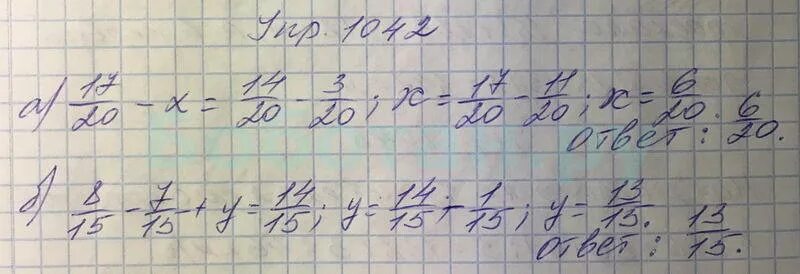 Упр. 1042
а) 17/20 - x = 14/20 - 3/20; x = 17/20 - 11/20; x = 6/20.
Ответ: 6/20.
б) 8/15 - 7/15 + y = 14/15; y = 14/15 - 1/15; y = 13/15.
Ответ: 13/15.